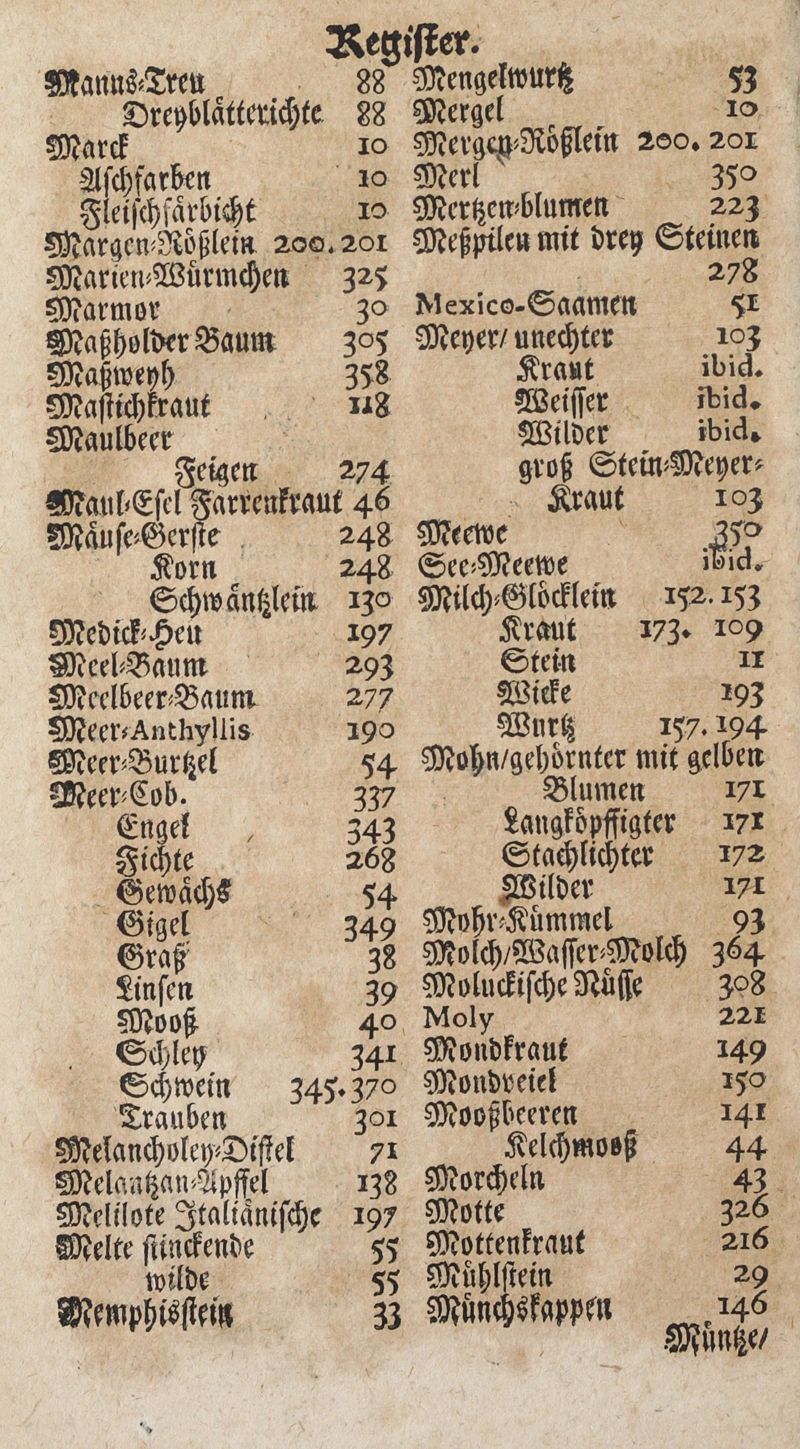 Register.
Manns-Treu 88
Dreyblåtterichte 88
Marck 10
Aschfarben 10
Fleischfårbicht 10
Margen-Rößlein 200. 201
Marien-Würmchen 325
Marmor 30
Maßholder Baum 305
Maßweyh 358
Mastichkraut 118
Maulbeer
Feigen 274
Maul-Esel Farrenkraut 46
Måuse-Gerste 248
Korn 248
Schwåntzlein 130
Medick-Heu 197
Meel-Baum 293
Meelbeer-Baum 277
Meer-Anthyllis 190
Meer-Burtzel 54
Meer-Cob. 337
Engel 343
Fichte 268
Gewåchs 54
Gigel 349
Graß 38
Linsen 39
Mooß 40
Schley 341
Schwein 345. 370
Trauben 301
Melancholey-Distel 71
Melantzan-Apffel 138
Melilote Italiånische 197
Melte stinckende 55
wilde 55
Memphisstein 33
Mengelwurtz 53
Mergel 10
Mergen-Rößlein 200. 201
Merl 350
Mertzen-blumen 223
Meßpilen mit drey Steinen
278
Mexico-Saamen 51
Meyer/ unechter 103
Kraut ibid.
Weisser ibid.
Wilder ibid.
groß Stein-Meyer-
Kraut 103
Meewe 350
See-Meewe ibid.
Milch-Glöcklein 152. 153
Kraut 173. 109
Stein 11
Wicke 193
Wurtz 157. 194
Mohn/gehörnter mit gelben
Blumen 171
Langköpffigter 171
Stachlichter 172
Wilder 171
Mohr-Kümmel 93
Molch/Wasser-Molch 364
Moluckische Nüsse 308
Moly 221
Mondkraut 149
Mondveiel 150
Mooßbeeren 141
Kelchmooß 44
Morcheln 43
Motte 326
Mottenkraut 216
Mühlstein 29
Münchskappen 146
Müntze/